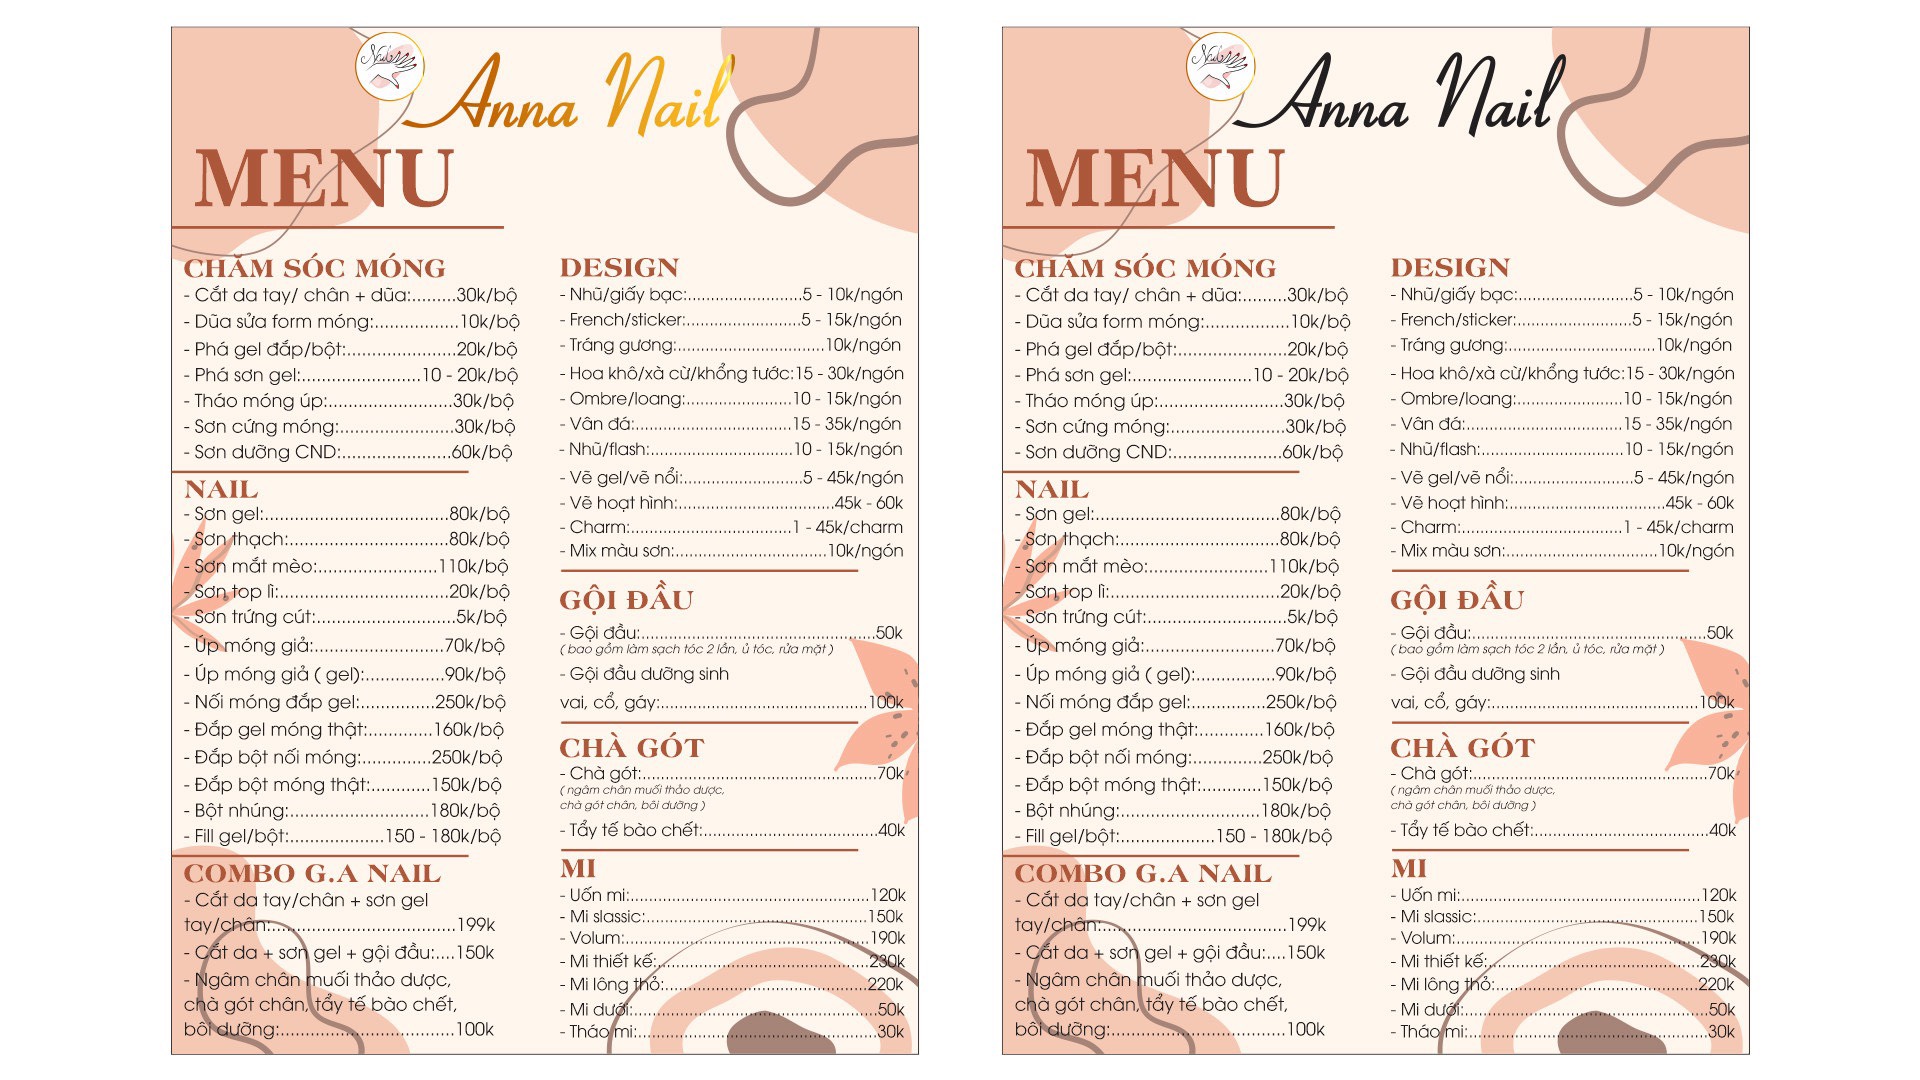 Nails
Anna Nail
MENU
CHĂM SÓC MÓNG
- Cắt da tay/ chân + dũa:.........30k/bộ
- Dũa sửa form móng:.................10k/bộ
- Phá gel đắp/bột:......................20k/bộ
- Phá sơn gel:........................10 - 20k/bộ
- Tháo móng úp:.........................30k/bộ
- Sơn cứng móng:.......................30k/bộ
- Sơn dưỡng CND:......................60k/bộ
NAIL
- Sơn gel:.....................................80k/bộ
- Sơn thạch:................................80k/bộ
- Sơn mắt mèo:........................110k/bộ
- Sơn top lì:..................................20k/bộ
- Sơn trứng cút:............................5k/bộ
- Úp móng giả:..........................70k/bộ
- Úp móng giả ( gel):................90k/bộ
- Nối móng đắp gel:...............250k/bộ
- Đắp gel móng thật:.............160k/bộ
- Đắp bột nối móng:..............250k/bộ
- Đắp bột móng thật:............150k/bộ
- Bột nhúng:............................180k/bộ
- Fill gel/bột:...................150 - 180k/bộ
COMBO G.A NAIL
- Cắt da tay/chân + sơn gel
tay/chân:.....................................199k
- Cắt da + sơn gel + gội đầu:....150k
- Ngâm chân muối thảo dược,
chà gót chân, tẩy tế bào chết,
bôi dưỡng:...................................100k
DESIGN
- Nhũ/giấy bạc:........................5 - 10k/ngón
- French/sticker:........................5 - 15k/ngón
- Tráng gương:...............................10k/ngón
- Hoa khô/xà cừ/khổng tước:15 - 30k/ngón
- Ombre/loang:......................10 - 15k/ngón
- Vân đá:.................................15 - 35k/ngón
- Nhũ/flash:..............................10 - 15k/ngón
- Vẽ gel/vẽ nổi:.........................5 - 45k/ngón
- Vẽ hoạt hình:.................................45k - 60k
- Charm:..................................1 - 45k/charm
- Mix màu sơn:................................10k/ngón
GỘI ĐẦU
- Gội đầu:.................................................50k
( bao gồm làm sạch tóc 2 lần, ủ tóc, rửa mặt )
- Gội đầu dưỡng sinh
vai, cổ, gáy:...........................................100k
CHÀ GÓT
- Chà gót:.................................................70k
( ngâm chân muối thảo dược,
chà gót chân, bôi dưỡng )
- Tẩy tế bào chết:.....................................40k
MI
- Uốn mi:..................................................120k
- Mi slassic:...............................................150k
- Volum:...................................................190k
- Mi thiết kế:.............................................230k
- Mi lông thỏ:...........................................220k
- Mi dưới:...................................................50k
- Tháo mi:..................................................30k
Nails
Anna Nail
MENU
CHĂM SÓC MÓNG
- Cắt da tay/ chân + dũa:.........30k/bộ
- Dũa sửa form móng:.................10k/bộ
- Phá gel đắp/bột:......................20k/bộ
- Phá sơn gel:........................10 - 20k/bộ
- Tháo móng úp:.........................30k/bộ
- Sơn cứng móng:.......................30k/bộ
- Sơn dưỡng CND:......................60k/bộ
NAIL
- Sơn gel:.....................................80k/bộ
- Sơn thạch:................................80k/bộ
- Sơn mắt mèo:........................110k/bộ
- Sơn top lì:..................................20k/bộ
- Sơn trứng cút:............................5k/bộ
- Úp móng giả:..........................70k/bộ
- Úp móng giả ( gel):................90k/bộ
- Nối móng đắp gel:...............250k/bộ
- Đắp gel móng thật:.............160k/bộ
- Đắp bột nối móng:..............250k/bộ
- Đắp bột móng thật:............150k/bộ
- Bột nhúng:............................180k/bộ
- Fill gel/bột:...................150 - 180k/bộ
COMBO G.A NAIL
- Cắt da tay/chân + sơn gel
tay/chân:.....................................199k
- Cắt da + sơn gel + gội đầu:....150k
- Ngâm chân muối thảo dược,
chà gót chân, tẩy tế bào chết,
bôi dưỡng:...................................100k
DESIGN
- Nhũ/giấy bạc:........................5 - 10k/ngón
- French/sticker:........................5 - 15k/ngón
- Tráng gương:...............................10k/ngón
- Hoa khô/xà cừ/khổng tước:15 - 30k/ngón
- Ombre/loang:......................10 - 15k/ngón
- Vân đá:.................................15 - 35k/ngón
- Nhũ/flash:..............................10 - 15k/ngón
- Vẽ gel/vẽ nổi:.........................5 - 45k/ngón
- Vẽ hoạt hình:.................................45k - 60k
- Charm:..................................1 - 45k/charm
- Mix màu sơn:................................10k/ngón
GỘI ĐẦU
- Gội đầu:.................................................50k
( bao gồm làm sạch tóc 2 lần, ủ tóc, rửa mặt )
- Gội đầu dưỡng sinh
vai, cổ, gáy:...........................................100k
CHÀ GÓT
- Chà gót:.................................................70k
( ngâm chân muối thảo dược,
chà gót chân, bôi dưỡng )
- Tẩy tế bào chết:.....................................40k
MI
- Uốn mi:..................................................120k
- Mi slassic:...............................................150k
- Volum:...................................................190k
- Mi thiết kế:.............................................230k
- Mi lông thỏ:...........................................220k
- Mi dưới:...................................................50k
- Tháo mi:..................................................30k